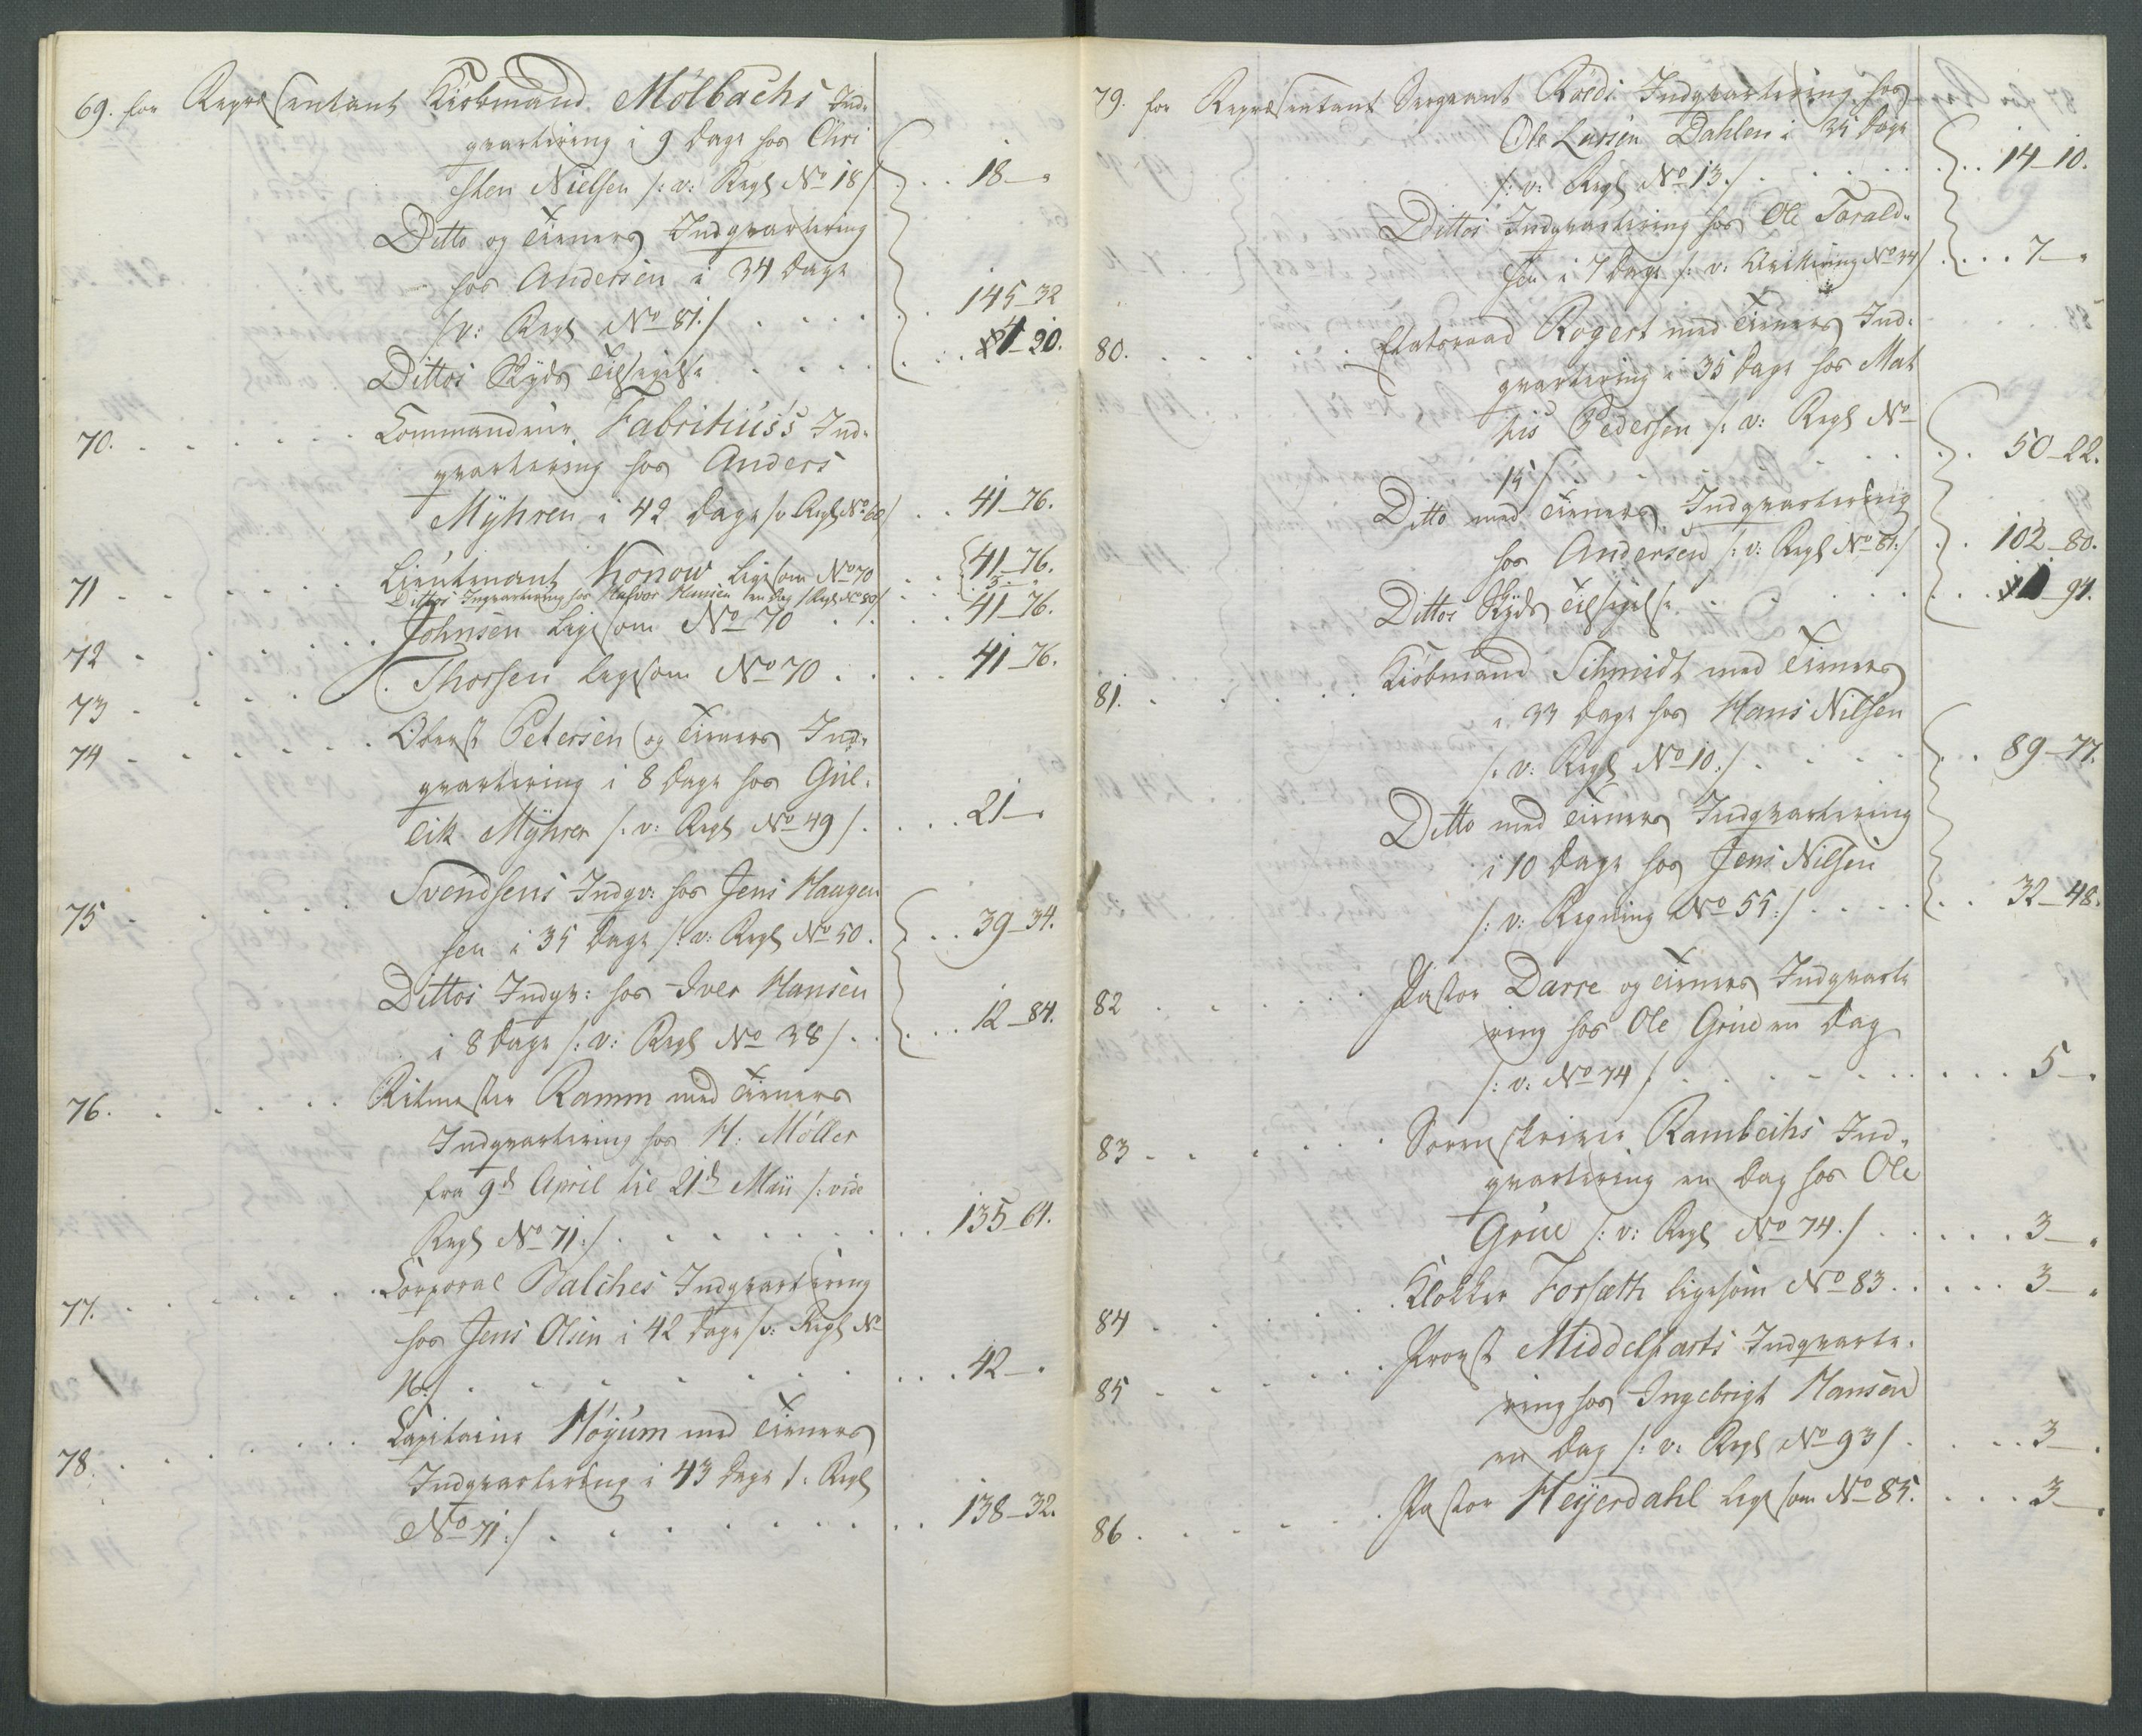 69. for Repræsentant Kiöbmand Mölbachs Ind-
qvartering i 9 Dage hos Chri
sten Nielsen /: v: Regg No 18/ . . 18 „
Ditto og Tieners Indqvartering
hos Andersen i 34 Dage
/v: Regg No 81./ . . . . . 145_32
Dittos Skyds Tilsigelse . . . . 1_20.
70. . . . . . Commandeur Fabritius's Ind-
qvartering hos Anders
Myhren i 42 Dage /v Regg No 60/ . . 41_76.
71 . . . . . Lieutenant Konow Ligesom No 70 . . 41_76.
Dittos Inqvartering hos Halvor Hansen en Dag /Regg No 80/ . . 3. „
72 . . . . . Johnsen Ligesom No 70 . . . . 41_76.
73 . . . . . Thorsen ligesom No 70 . . . . 41_76.
74 . . . . . Oberst Petersen og Tieners Ind-
qvartering i 8 Dage hos Gul-
lik Myhrer /: v: Regg No 49/ . . . . 21_„
75 . . . . . Svendsens Indqv: hos Jens Haagen
sen i 35 Dage /: v: Regg No 50. . . 39_34.
Dittos Indqv: hos Iver Hansen
i 8 Dage /: v: Regg No 38/ . . . . 12_84.
76. . . . . . Ritmester Ramm med Tieners
Indqvartering hos H: Möller
fra 9d April til 21d Maii /: vide
Regg No 71:/ . . . . . . . . 135_64.
77. . . . . . Corporal Balches Indqvartering
hos Jens Olsen i 42 Dage /v: Regg No
16:/ . . . . . . . . 42_„
78. . . . . . Capitaine Höyum med Tieners
Indqvartering i 43 Dage /: Regg
No 71:/ . . . . . . . . 138_32.
79. for Repræsentant Sergeant Röeds Indqvartering hos
Ole Larsen Dahlen i 35 Dage
/: v: Regg No 13./ . . . . . . 14_10.
Dittos Indqvartering hos Ole Torald-
sen i 7 Dage /: v: Qvitering No 34/ . . . 7_„
80. . . . . . Etatsraad Rogert med Tieners Ind-
qvartering i 35 Dage hos Mat
his Pedersen /: v: Regg No
15/ . . . . . . 50_22.
Ditto med Tieners Indqvartering
hos Andersen /: v: Regg No 81:/ . . 102_80.
Dittos Skyds Tilsigelse . . . . . . 1_94.
81. . . . . . Kiöbmand Schmidt med Tieners
i 33 Dage hos Hans Nilsen
/: v: Regg No 10:/ . . . . . . 89_77.
Ditto med Tieners Indqvartering
i 10 Dage hos Jens Nilsen
/: v: Regning No 55:/ . . . . . . 32_48.
82 . . . . . Pastor Darre og Tieners Indqvarte
ring hos Ole Grüe en Dag
/: v: No 74/ . . . . . . . . 5_„
83 . . . . . Sorenskriver Rambechs Ind-
qvartering en Dag hos Ole
Grüe /: v: Regg No 74./ . . . . . 3_„
84 . . . . . Klokker Forsæth ligesom No 83. . . . . 3_„
85 . . . . . Provst Middelfarts Indqvarte-
ring hos Ingebrigt Hansen
en Dag /: v: Regg No 93/ . . . . . 3_„
86 . . . . . Pastor Heyerdahl Ligesom No 85. . . . 3_„